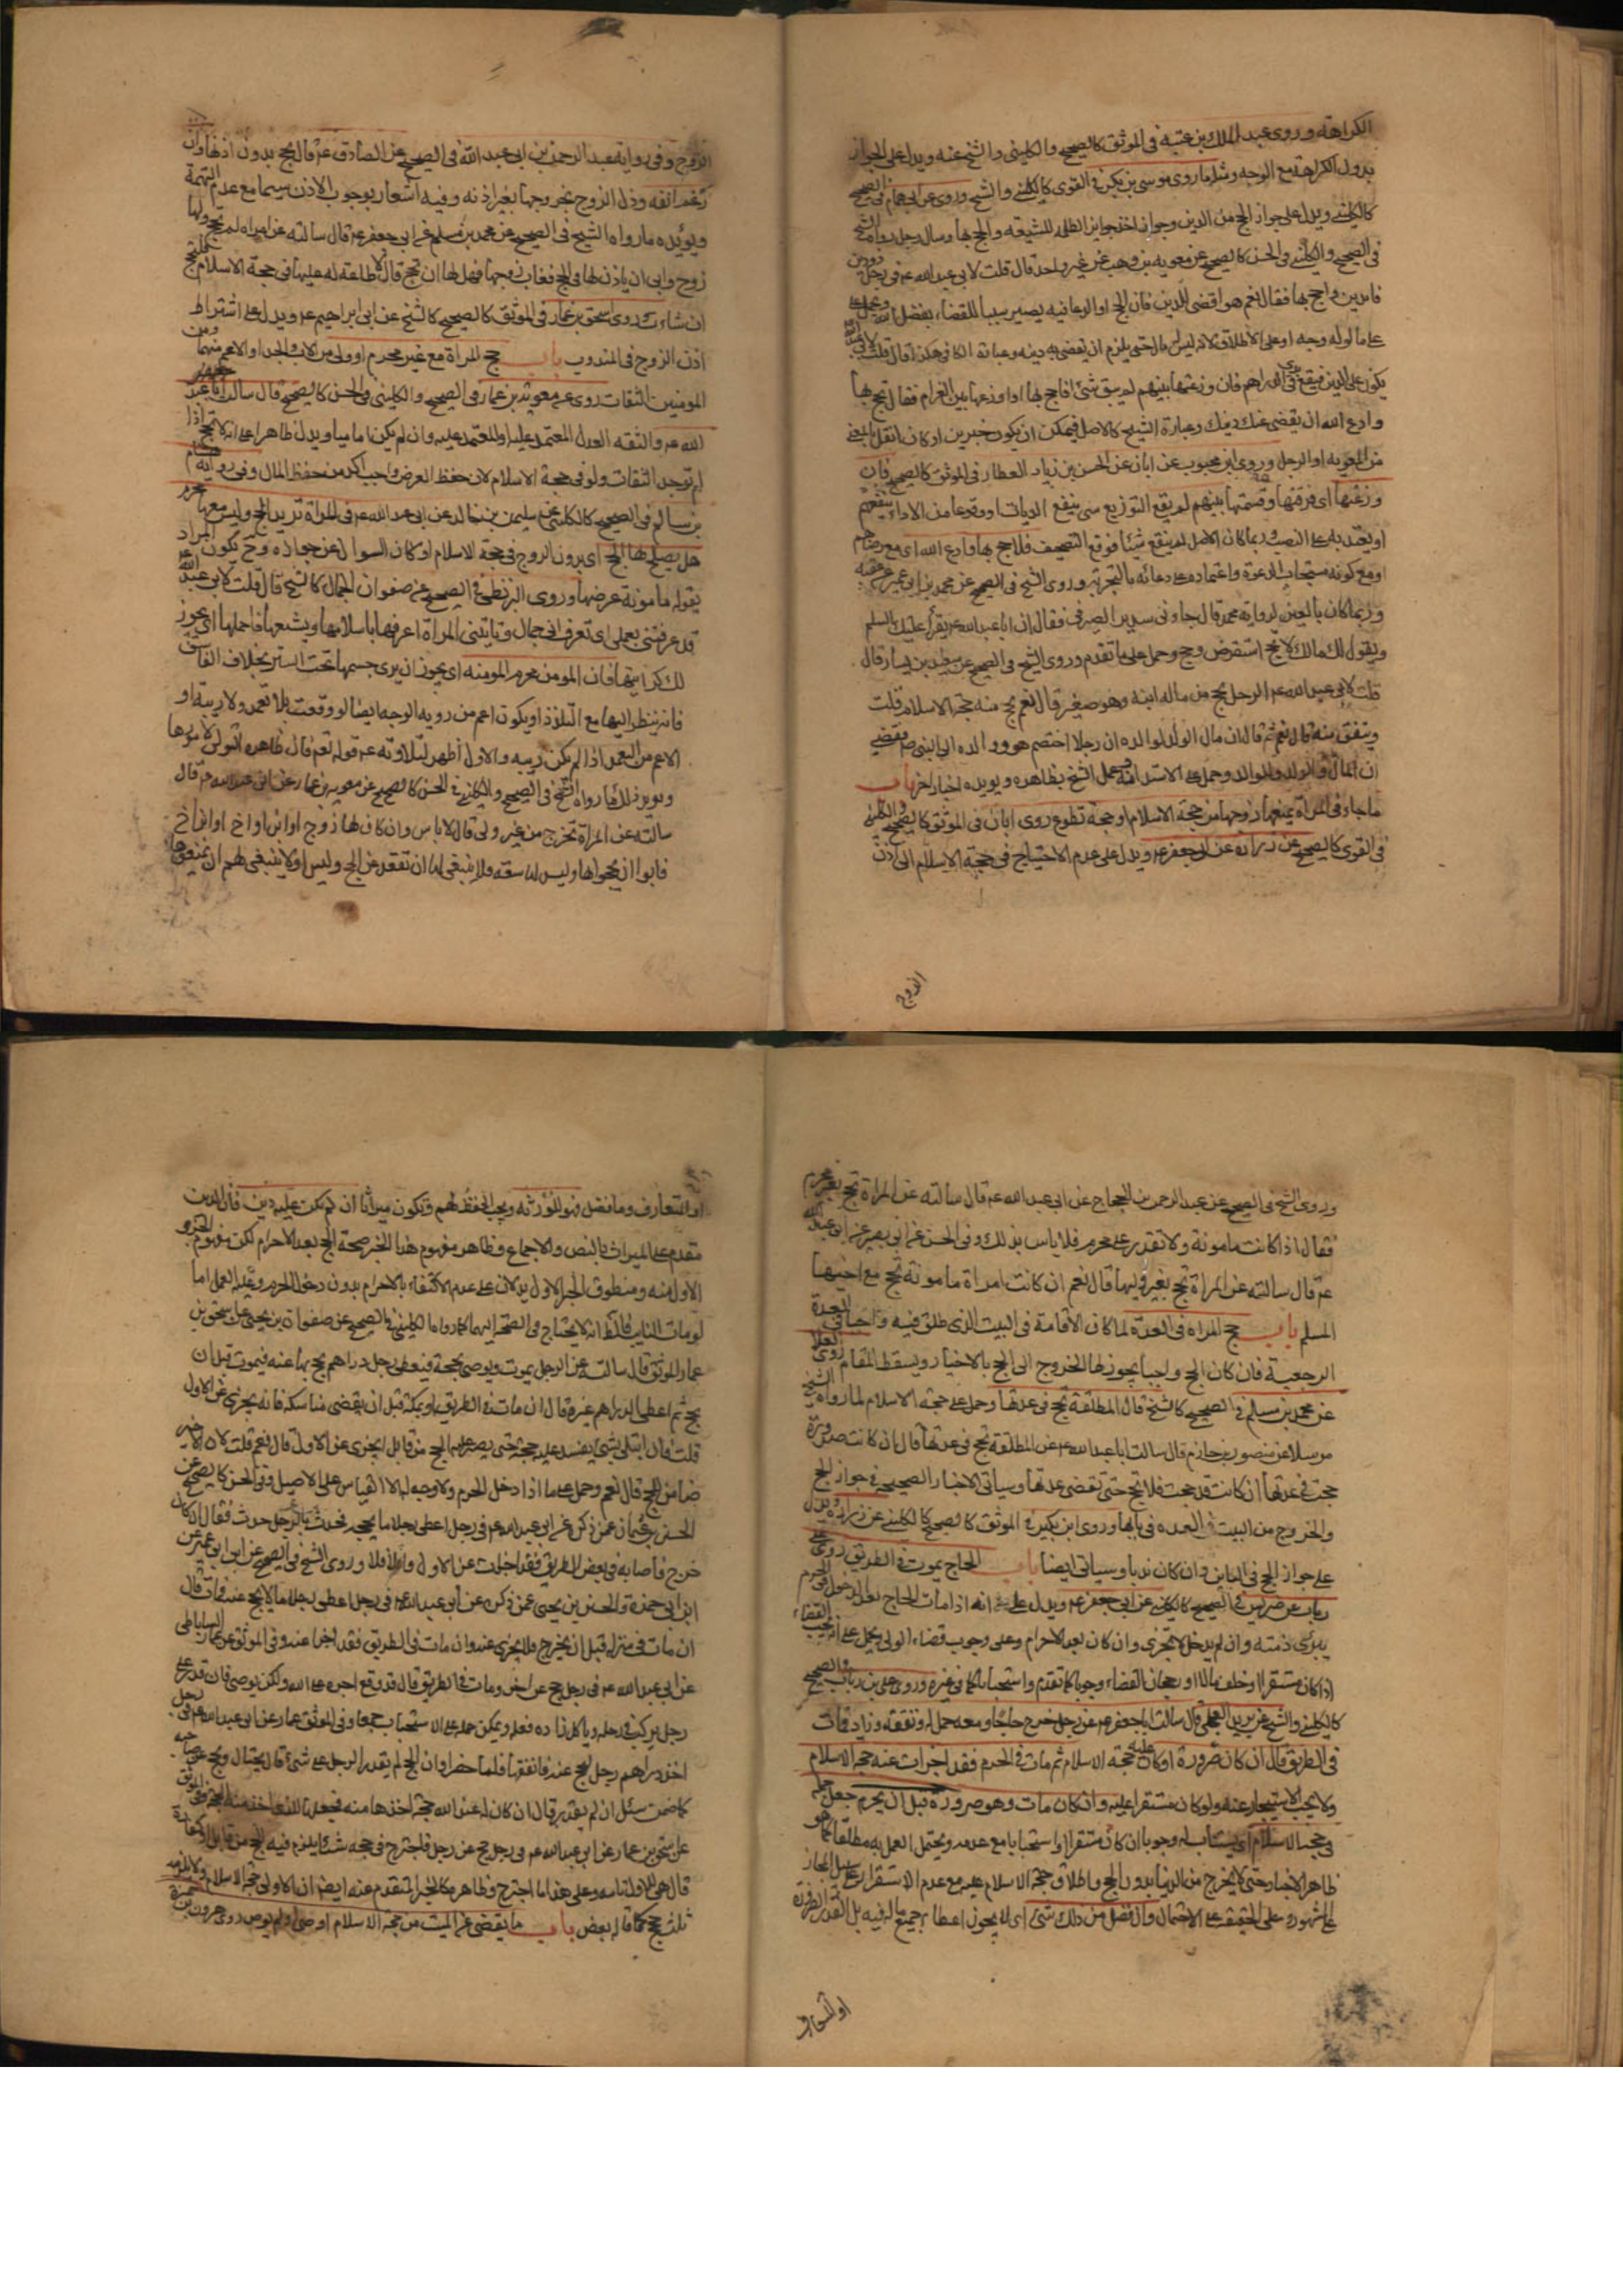 الكراهة وروى عبد الملك بن عتبة فى الموثق كالصحيح والكلينى والشيخ عنه ويدل على الجواز
بدون الكراهة مع الوجه ومثله ما روى موسى بن بكر فى القوى كالكلينى والشيخ وروى عن ابى همام فى الصحيح
كالكلينى ويدل على جواز الحج من الدين وجواز اخذ جوايز الظلمه للشيعة والحج بها وسال رجل رواه الشيخ
فى الصحيح والكلينى فى الحسن كالصحيح عن معوية بن وهب عن غير واحد قال قلت لابى عبد الله عم فى رجل ذو دين
فاتدين واحج بها فقال نعم هو اقضى للدين فان الحج او الدعا فيه يصير سببا للقضاء بفضل الله وحمل على
على ما لو له وجه او على الاطلاق لانه ليس له مال حتى يلزم ان يقضى به دينه وعبارة الكافى هكذا قال قلت لابى عبد الله
يكون على الدين فيقع فى يدى الدراهم فان وزعتها بينهم لم يبق شئ افاحج بها او اوزعها بين الغرام فقال تحج بها
وادع الله ان يقضى عنك دينك وعبارة الشيخ كالاصل فيمكن ان يكون خبرين او كان النقل بالمعنى
من المعوية او الرجل وروى ابن محبوب عن ابان عن الحسن بن زياد العطار فى الموثق كالصحيح فان
وزعتها اى فرقتها وقسمتها بينهم لم يقع التوزيع شى ينفع الديات او وقوعا من الاداء ينفعهم
او يعتد به على النصب وربما كان الاصل لم ينفع شيئا فوقع التصحيف فلا حج بها وادع الله اى مع رضاهم
او مع كونه مستجاب الدعوة واعتماده على دعائه بالتجربة وروى الشيخ فى الصحيح عن محمد بن ابى عمير عن عقبه
وربما كان بالعين لرواية محمد قال جاءنى سدير الصيرفى فقال ان ابا عبد الله عم يقرأ عليك السلم
ويقول لك مالك لا تحج استقرض وحج وحمل على ما تقدم وروى الشيخ فى الصحيح عن سعيد بن يسار قال
قلت لابى عبد الله عم الرجل يحج من مال ابنه وهو صغير قال نعم يحج منه حجة الاسلام قلت
وينفق منه قال نعم ثم قال ان مال الولد لوالده ان رجلا اختصم هو ووالده الى النبى ص فقضى
ان المال والولد للوالد وحمل على الاستدانة وعمل الشيخ بظاهره ويويده اخبار اخر باب
ما جاء فى المراة يمنعها زوجها من حجة الاسلام او حجة تطوع روى ابان فى الموثق كالصحيح والكلينى
فى القوى كالصحيح عن زرارة عن ابى جعفر عم ويدل على عدم الاحتياج فى حجة الاسلام الى اذن
الزوج
الزوج وفى رواية عبد الرحمن بن ابى عبد الله فى الصحيح عن الصادق عم قال تحج بدون اذنها وان
رغم انفه وذل الزوج بخروجها بغير اذنه وفيه اشعار بوجوب الاذن سيما مع عدم التهمة
ويؤيده ما رواه الشيخ فى الصحيح عن محمد بن مسلم عن ابى جعفر عم قال سالته عن امراه لم تحج ولها
زوج وابى ان ياذن لها فى الحج فغاب زوجها فهل لها ان تحج قال لا طاعة له عليها فى حجة الاسلام فلتحج
ان شاءت وروى اسحق بن عمار فى الموثق كالصحيح كالشيخ عن ابى ابراهيم عم ويدل على اشتراط
اذن الزوج فى المندوب باب حج المراة مع غير محرم او ولى من الاب والجد او الاعم منهما ومن
المومنين الثقات روى عم معوية بن عمار فى الصحيح والكلينى فى الحسن كالصحيح قال سالت ابا عبد
الله عم والثقه العدل المعتمد عليه او المعتمد عليه وان لم يكن اماميا ويدل ظاهرا على انه لا تحج اذا
لم توجد الثقات ولو فى حجة الاسلام لان حفظ العرض واجب اكثر من حفظ المال وفى رواية هشام
بن سالم فى الصحيح كالكلينى عن سليمن بن خالد عن ابى عبد الله عم فى المراة تريد الحج وليس معها محرم
هل يصلح لها الحج اى بدون الزوج فى حجة الاسلام او كان السوال عن جوازه وح يكون المراد
بقوله مامونة عرضها وروى البزنطى فى الصحيح عن صفوان الجمال كالشيخ قال قلت لابى عبد الله
قد عرفتنى بعملى اى تعرف انى جمال وتايتينى المراة اعرفها باسلامها وبشيعها فاحملها اى يجوز
لك كرايتها فان المومن محرم المومنه اى يجوز ان يرى جسمها تحت الستر بخلاف الفاسق
فانه ينظر اليها مع التلذذ او يكون اعم من روية الوجه ايضا لو وقعت بلا تعمد ولا ريبة او
الاعم من التعمد اذا لم يكن ريبه والاول اظهر لتلاوته عم قوله تعم فان ظاهره التولى لامورها
ويويد ذلك ما رواه الشيخ فى الصحيح والكلينى فى الحسن كالصحيح عن معوية بن عمار عن ابى عبد الله عم قال
سالته عن المراة تخرج من غير ولى قال لا باس وان كان لها زوج او ابن او اخ او ابن اخ
فابوا ان يحجوا بها وليس لها سعة فلا ينبغى لها ان تقعد عن الحج وليس او لا ينبغى لهم ان يمنعوها
وروى الشيخ فى الصحيح عن عبد الرحمن بن الحجاج عن ابى عبد الله عم قال سالته عن المراة تحج بغير محرم
فقال اذا كانت مامونة ولا تقدر على محرم فلا باس بذلك وفى الحسن عن ابى بصير عن ابى عبد الله
عم قال سالته عن المراة تحج بغير وليها قال نعم ان كانت امراة مامونة تحج مع اخيها
المسلم باب حج المراه فى العدة لما كان الاقامة فى البيت الذى طلق فيه واجبا فى العدة
الرجعية فان كان الحج واجبا يجوز لها الخروج الى الحج بالاخبار ويسقط المقام روى العلا
عن محمد بن مسلم فى الصحيح كالشيخ قال المطلقة تحج فى عدتها وحمل على حجة الاسلام لما رواه الشيخ
مرسلا عن منصور بن حازم قال سالت ابا عبد الله عم عن المطلقة تحج فى عدتها قال ان كانت صرورة
حجت فى عدتها ان كانت قد حجت فلا تحج حتى تقضى عدتها وسياتى الاخبار الصحيحة فى جواز الحج
والخروج من البيت فى العده فى بابها وروى ابن بكير فى الموثق كالصحيح كالكلينى عن زرارة ويدل
على جواز الحج فى الباين وان كان ندبا وسياتى ايضا باب الحاج يموت فى الطريق روى على
رباب عن ضريس فى الصحيح كالكلينى عن ابى جعفر عم ويدل على انه اذا مات الحاج بعد الدخول فى الحرم
يبرئ ذمته وان لم يدخل لا تجزى وان كان بعد الاحرام وعلى وجوب قضاء الولى يحمل على انه يجب القضاء
اذا كان مستقرا او خلف مالا او رجحان القضاء وجوبا كما تقدم واستحبابا كما فى غيره وروى على بن رباب فى الصحيح
كالكلينى والشيخ عن بريد العجلى قال سالت ابا جعفر عم عن رجل خرج حاجا ومعه جمل له ونفقة وزاد فمات
فى الطريق قال ان كان صرورة او كان عليه حجة الاسلام ثم مات فى الحرم فقد اجزات عنه حجة الاسلام
ولا يجب الاستيجار عنه ولو كان مستقرا عليه وان كان مات وهو صرورة قبل ان يحرم جعل جمله
فى حجة الاسلام اى يستناب له وجوبا ان كان مستقرا او استحبابا مع عدمه ويحتمل العمل به مطلقا كما هو
ظاهر الاخبار حتى لا يخرج من الدنيا بدون الحج واطلاق حجة الاسلام عليه مع عدم الاستقرار على سبيل المجاز
على المشهور وعلى الحقيقة على الاحتمال وان فضل من ذلك شئ اى لا يجوز اعطاء جميع ماله فيه بل القدر الضرورة
او المتعارف
او المتعارف وما فضل فهو للورثه ويجب الحفظ لهم وتكون ميراثا ان لم يكن عليه دين فان الدين
مقدم على الميراث بالنص والاجماع وظاهر مفهوم هذا الخبر صحة الحج بعد الاحرام لكن مفهوم الجزو
الاول منه ومنطوق الخبر الاول يدلان على عدم الاكتفاء بالاحرام بدون دخول الحرم وعليه العمل اما
لو مات النايب فالظ انه لا يحتاج فى الصحة اليهما كما رواه الكلينى فى الصحيح عن صفوان بن يحيى عن اسحق بن
عمار الموثق قال سالته عن الرجل يموت ويوصى بحجة فيعطى رجل دراهم يحج بها عنه فيموت قبل ان
يحج ثم اعطى الدراهم غيره قال ان مات فى الطريق او بمكة قبل ان يقضى مناسكه فانه يجزى عن الاول
قلت فان ابتلى بشئ يفسد عليه حجه حتى يصير عليه الحج من قابل ايجزى عن الاول قال نعم قلت لان الاجير
ضامن للحج قال نعم وحمل على ما اذا دخل الحرم ولا وجه له الا القياس على الاصيل وفى الحسن كالصحيح عن
الحسين بن عثمان عمن ذكره عن ابى عبد الله عم فى رجل اعطى رجلا ما يحجه فحدث بالرجل حدث فقال ان كان
خرج فاصابه فى بعض الطريق فقد اجزات عن الاول والا فلا وروى الشيخ فى الصحيح عن ابن ابى عمير عن
ابن ابى حمزة والحسين بن يحيى عمن ذكره عن ابى عبد الله عم فى رجل اعطى رجلا مالا يحج عنه فمات قال
ان مات فى منزله قبل ان يخرج فلا يجزى عنه وان مات فى الطريق فقد اجزا عنه وفى الموثق عن عمار الساباطى
عن ابى عبد الله عم فى رجل حج عن اخر ومات فى الطريق قال قد وقع اجره على الله ولكن يوصى فان قدر على
رجل يركب فى رحله وياكل زاده فعل ويمكن حمله على الاستحباب جمعا وفى الموثق عمار عن ابى عبد الله عم فى رجل
اخذ دراهم رجل ليحج عنه فانفقها فلما حضر اوان الحج لم يقدر الرجل على شئ قال يحتال ويحج عن صاحبه
كما ضمن سئل ان لم يقدر قال ان كان له عند الله حجة اخذها منه فجعلها للذى اخذ منه الحجة وفى الموثق
عن اسحق بن عمار عن ابى عبد الله عم فى رجل حج عن رجل فاجترح فى حجه شيئا يلزم فيه الحج من قابل او كفارة
قال هى للاول تامه وعلى هذا ما اجترح وظاهره كالخبر المتقدم عنه ايضا ان الاولى حجة الاسلام ولا يلزمه
ثلث حجج كما قاله بعض باب ما يقضى عن الميت من حجة الاسلام اوصى او لم يوص روى هرون بن حمزة